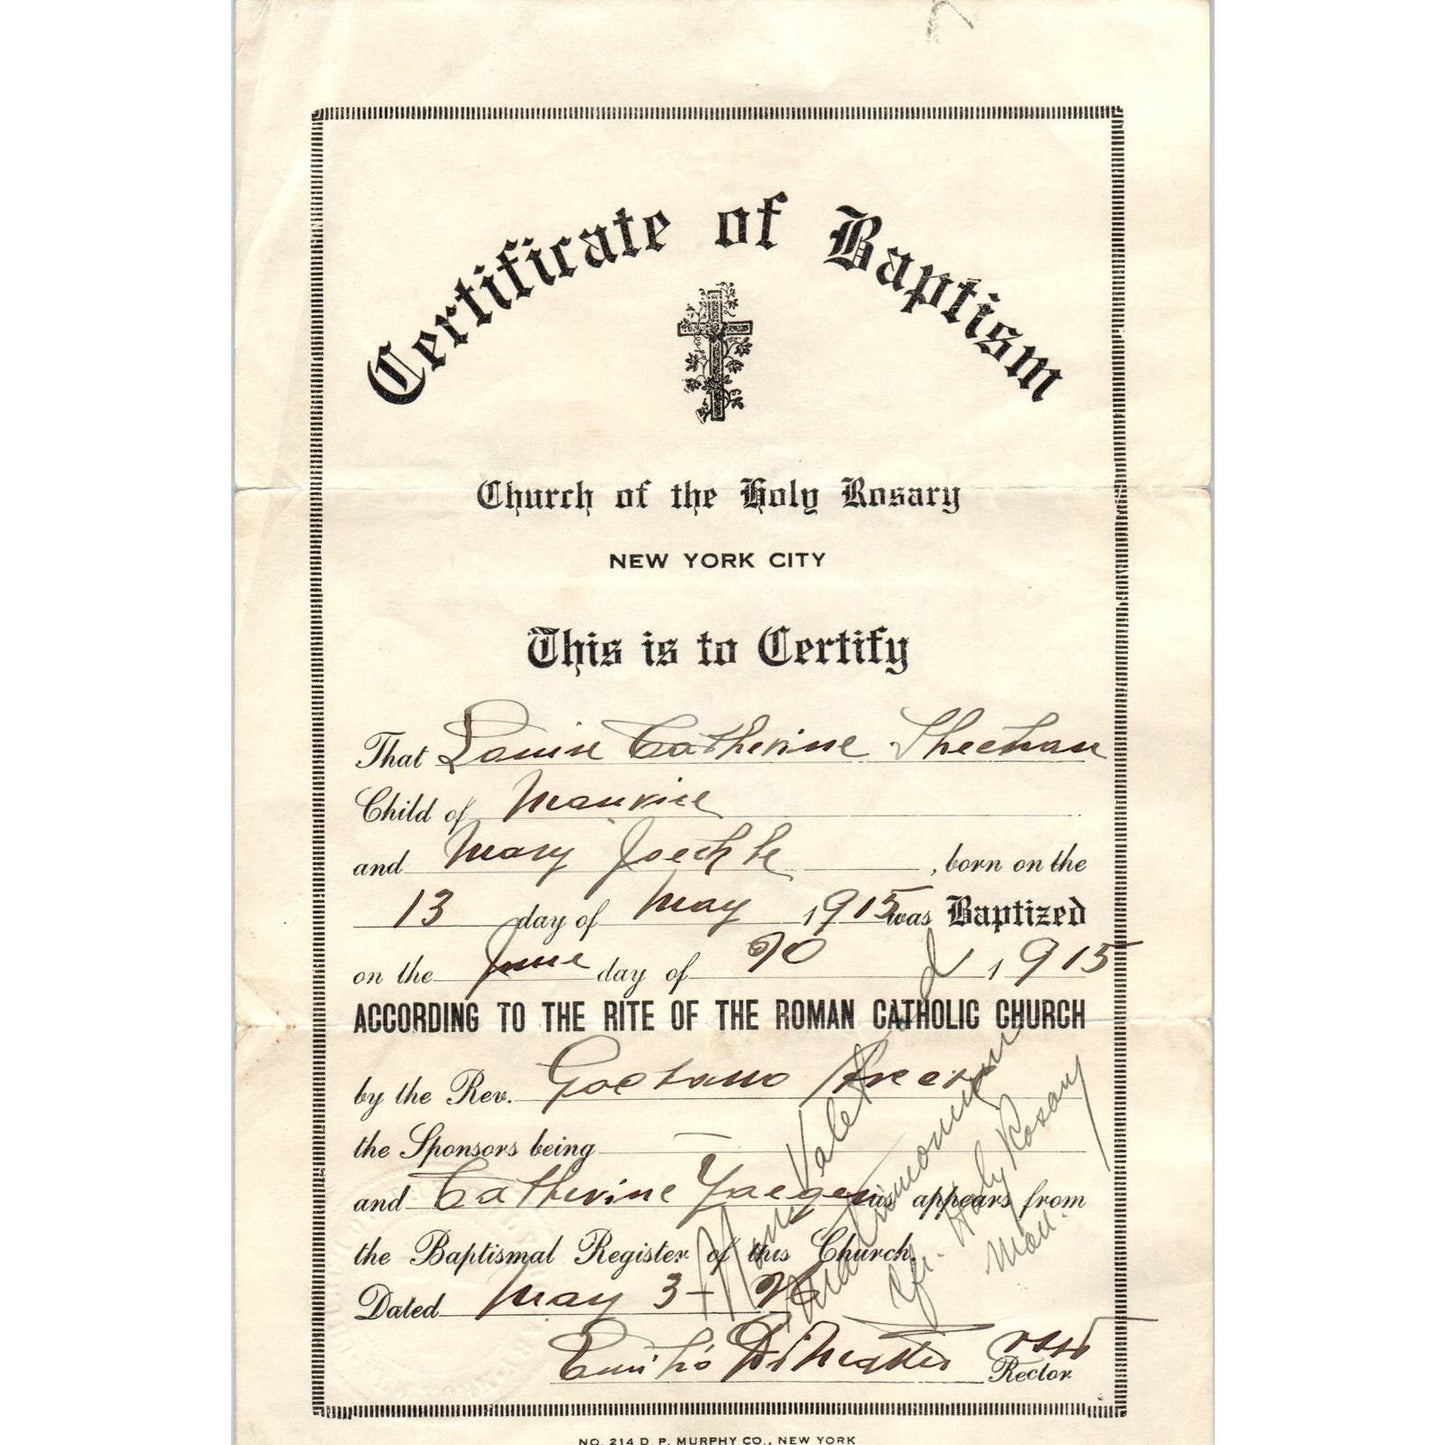 Certificate of Baptism
Church of the Holy Rosary
NEW YORK CITY
This is to Certify
That Louise Catherine Sheehan
Child of Maurice
and Mary Joechle, born on the
13 day of May 1915 was Baptized
on the June day of 20 1915
ACCORDING TO THE RITE OF THE ROMAN CATHOLIC CHURCH
by the Rev. Gaetano
the Sponsors being —
and Catherine Yaeger as appears from
the Baptismal Register of this Church.
Dated May 3 - 26
Emilio
Rector
Non Valet
Matrimonium
Holy Rosary
NO. 214 D. P. MURPHY CO., NEW YORK